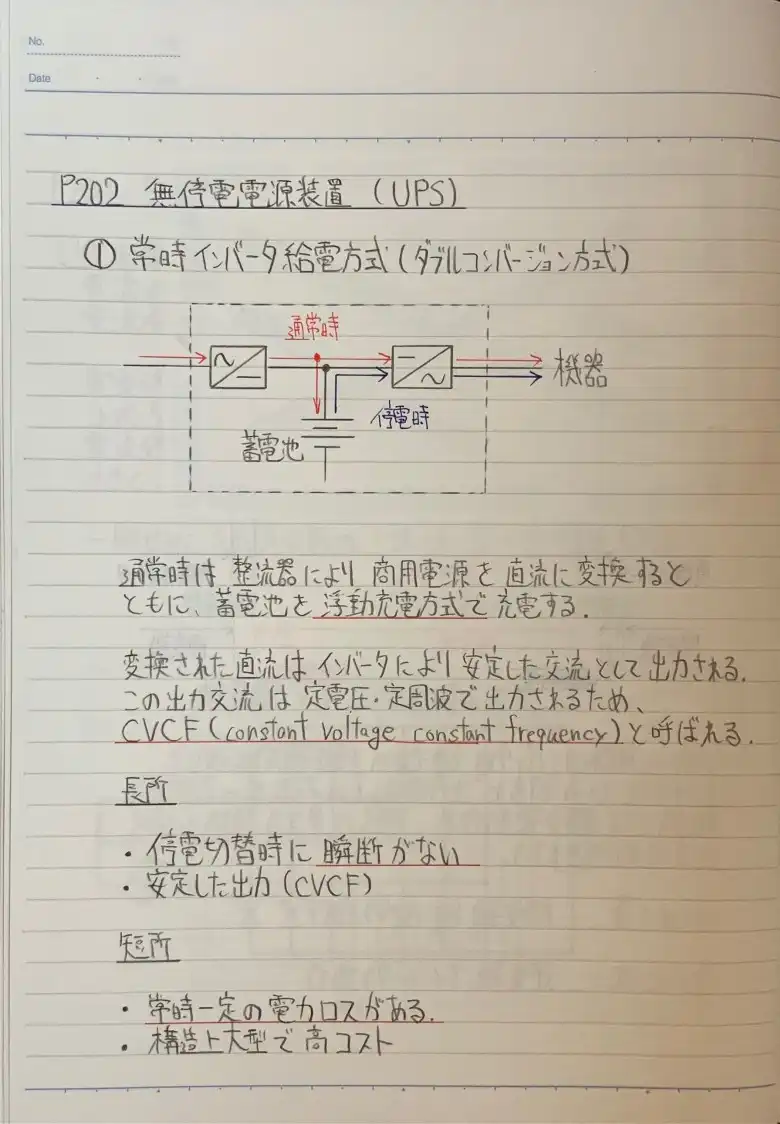 No.
Date
P202 無停電電源装置 (UPS)
① 常時インバータ給電方式(ダブルコンバージョン方式)
通常時
機器
停電時
蓄電池
通常時は 整流器により 商用電源を 直流に変換すると
ともに、蓄電池を 浮動充電方式で 充電する.
変換された直流は インバータにより 安定した交流として出力される.
この出力交流は 定電圧・定周波で出力されるため、
CVCF(constant voltage constant frequency)と呼ばれる.
長所
・停電切替時に 瞬断がない
・安定した出力(CVCF)
短所
・常時一定の電力ロスがある.
・構造上大型で高コスト